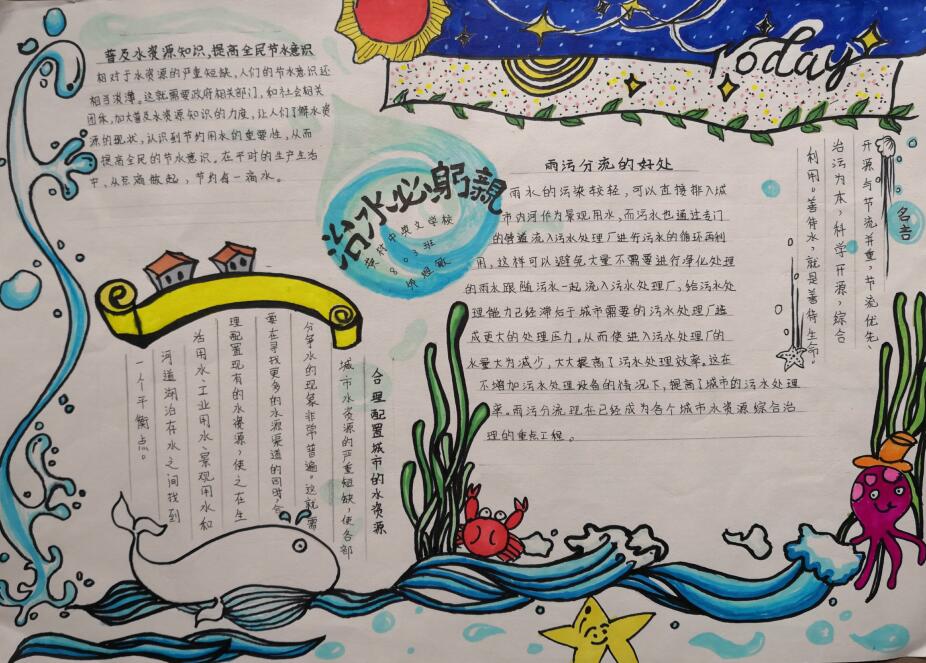 普及水资源知识,提高全民节水意识
相对于水资源的严重短缺,人们的节水意识还
相当淡薄。这就需要政府相关部门,和社会相关
团体,加大普及水资源知识的力度,让人们了解水资
源的现状,认识到节约用水的重要性,从而
提高全民的节水意识。在平时的生产生活
中,从点滴做起,节约每一滴水。
Today
治水必躬親
中央文学校
803班
雨污分流的好处
雨水的污染较轻,可以直接排入城
市内河作为景观用水,而污水也通过专门
的管道流入污水处理厂进行污水的循环再利
用,这样可以避免大量不需要进行净化处理
的雨水跟随污水一起流入污水处理厂,给污水处
理能力已经滞后于城市需要的污水处理厂造
成更大的处理压力。从而使进入污水处理厂的
水量大为减少,大大提高了污水处理效率。这在
不增加污水处理设备的情况下,提高了城市的污水处理
率。雨污分流现在已经成为各个城市水资源综合治
理的重点工程。
名言
开源与节流并重,节流优先、
治污为本,科学开源,综合
利用。善待水,就是善待生命。
合理配置城市的水资源
城市水资源的严重短缺,使各部
分争水的现象非常普遍。这就需
要在寻找更多的水源渠道的同时,合
理配置现有的水资源,使之在生
活用水、工业用水、景观用水和
河道湖泊存水之间找到
一个平衡点。